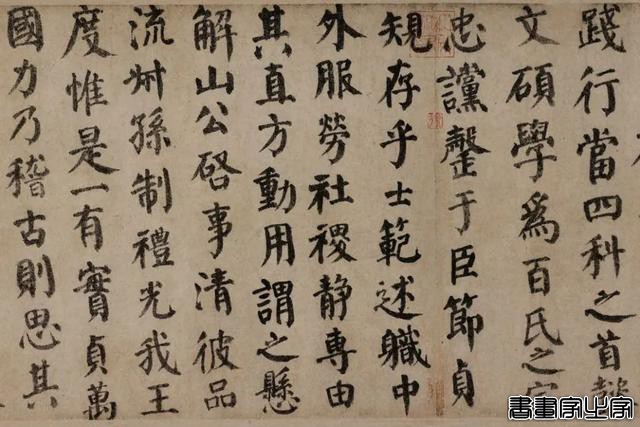 踐行當四科之首懿
文碩學爲百氏之宗
忠讜罄于臣節貞
規存乎士範述職中
外服勞社稷静專由
其直方動用謂之懸
解山公啓事清彼品
流叔孫制禮光我王
度惟是一有實貞萬
國力乃稽古則思其